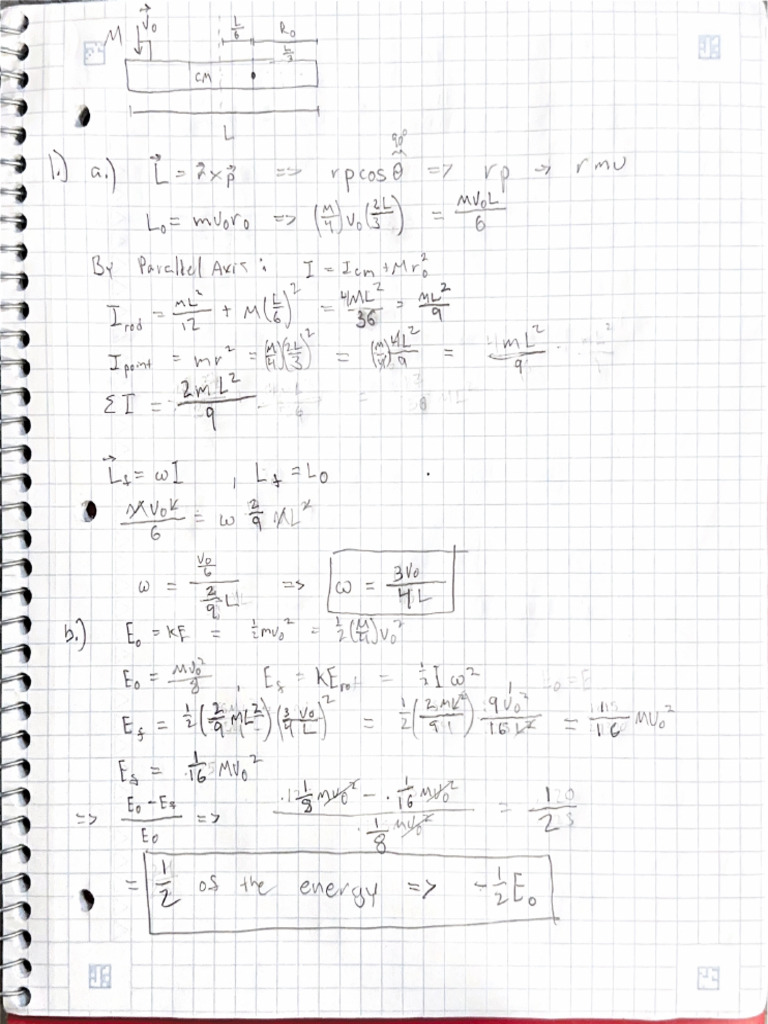 M v⃗₀ L/6 R₀
L/3
CM
L
1.) a.) L⃗ = r⃗ × p⃗ => rpcosθ 90° => rp → rmv
L₀ = mv₀r₀ => (M/4) v₀ (2L/3) = MV₀L/6
By Parallel Axis: I = Icm + Mr₀²
I rod = ML²/12 + M(L/6)² = 4ML²/36 = ML²/9
I point = mr² = (M/4)(2L/3)² = (M/4) 4L²/9 = mL²/9
ΣI = 2mL²/9
L⃗f = ωI , Lf = L₀
MV₀L/6 = ω 2/9 ML²
ω = (V₀/6)/(2/9 L) => ω = 3V₀/4L
b.) E₀ = KE = ½mv₀² = ½(M/4)v₀²
E₀ = Mv₀²/8 , Ef = KErot = ½Iω²
Ef = ½(2/9 ML²)(3/4 V₀/L)² = ½(2ML²/9) 9V₀²/16L² = 1/16 MV₀²
Ef = 1/16 MV₀²
=> (E₀-Ef)/E₀ => (1/8 MV₀² - 1/16 MV₀²)/(1/8 MV₀²) = 1/2
= 1/2 of the energy => -½E₀